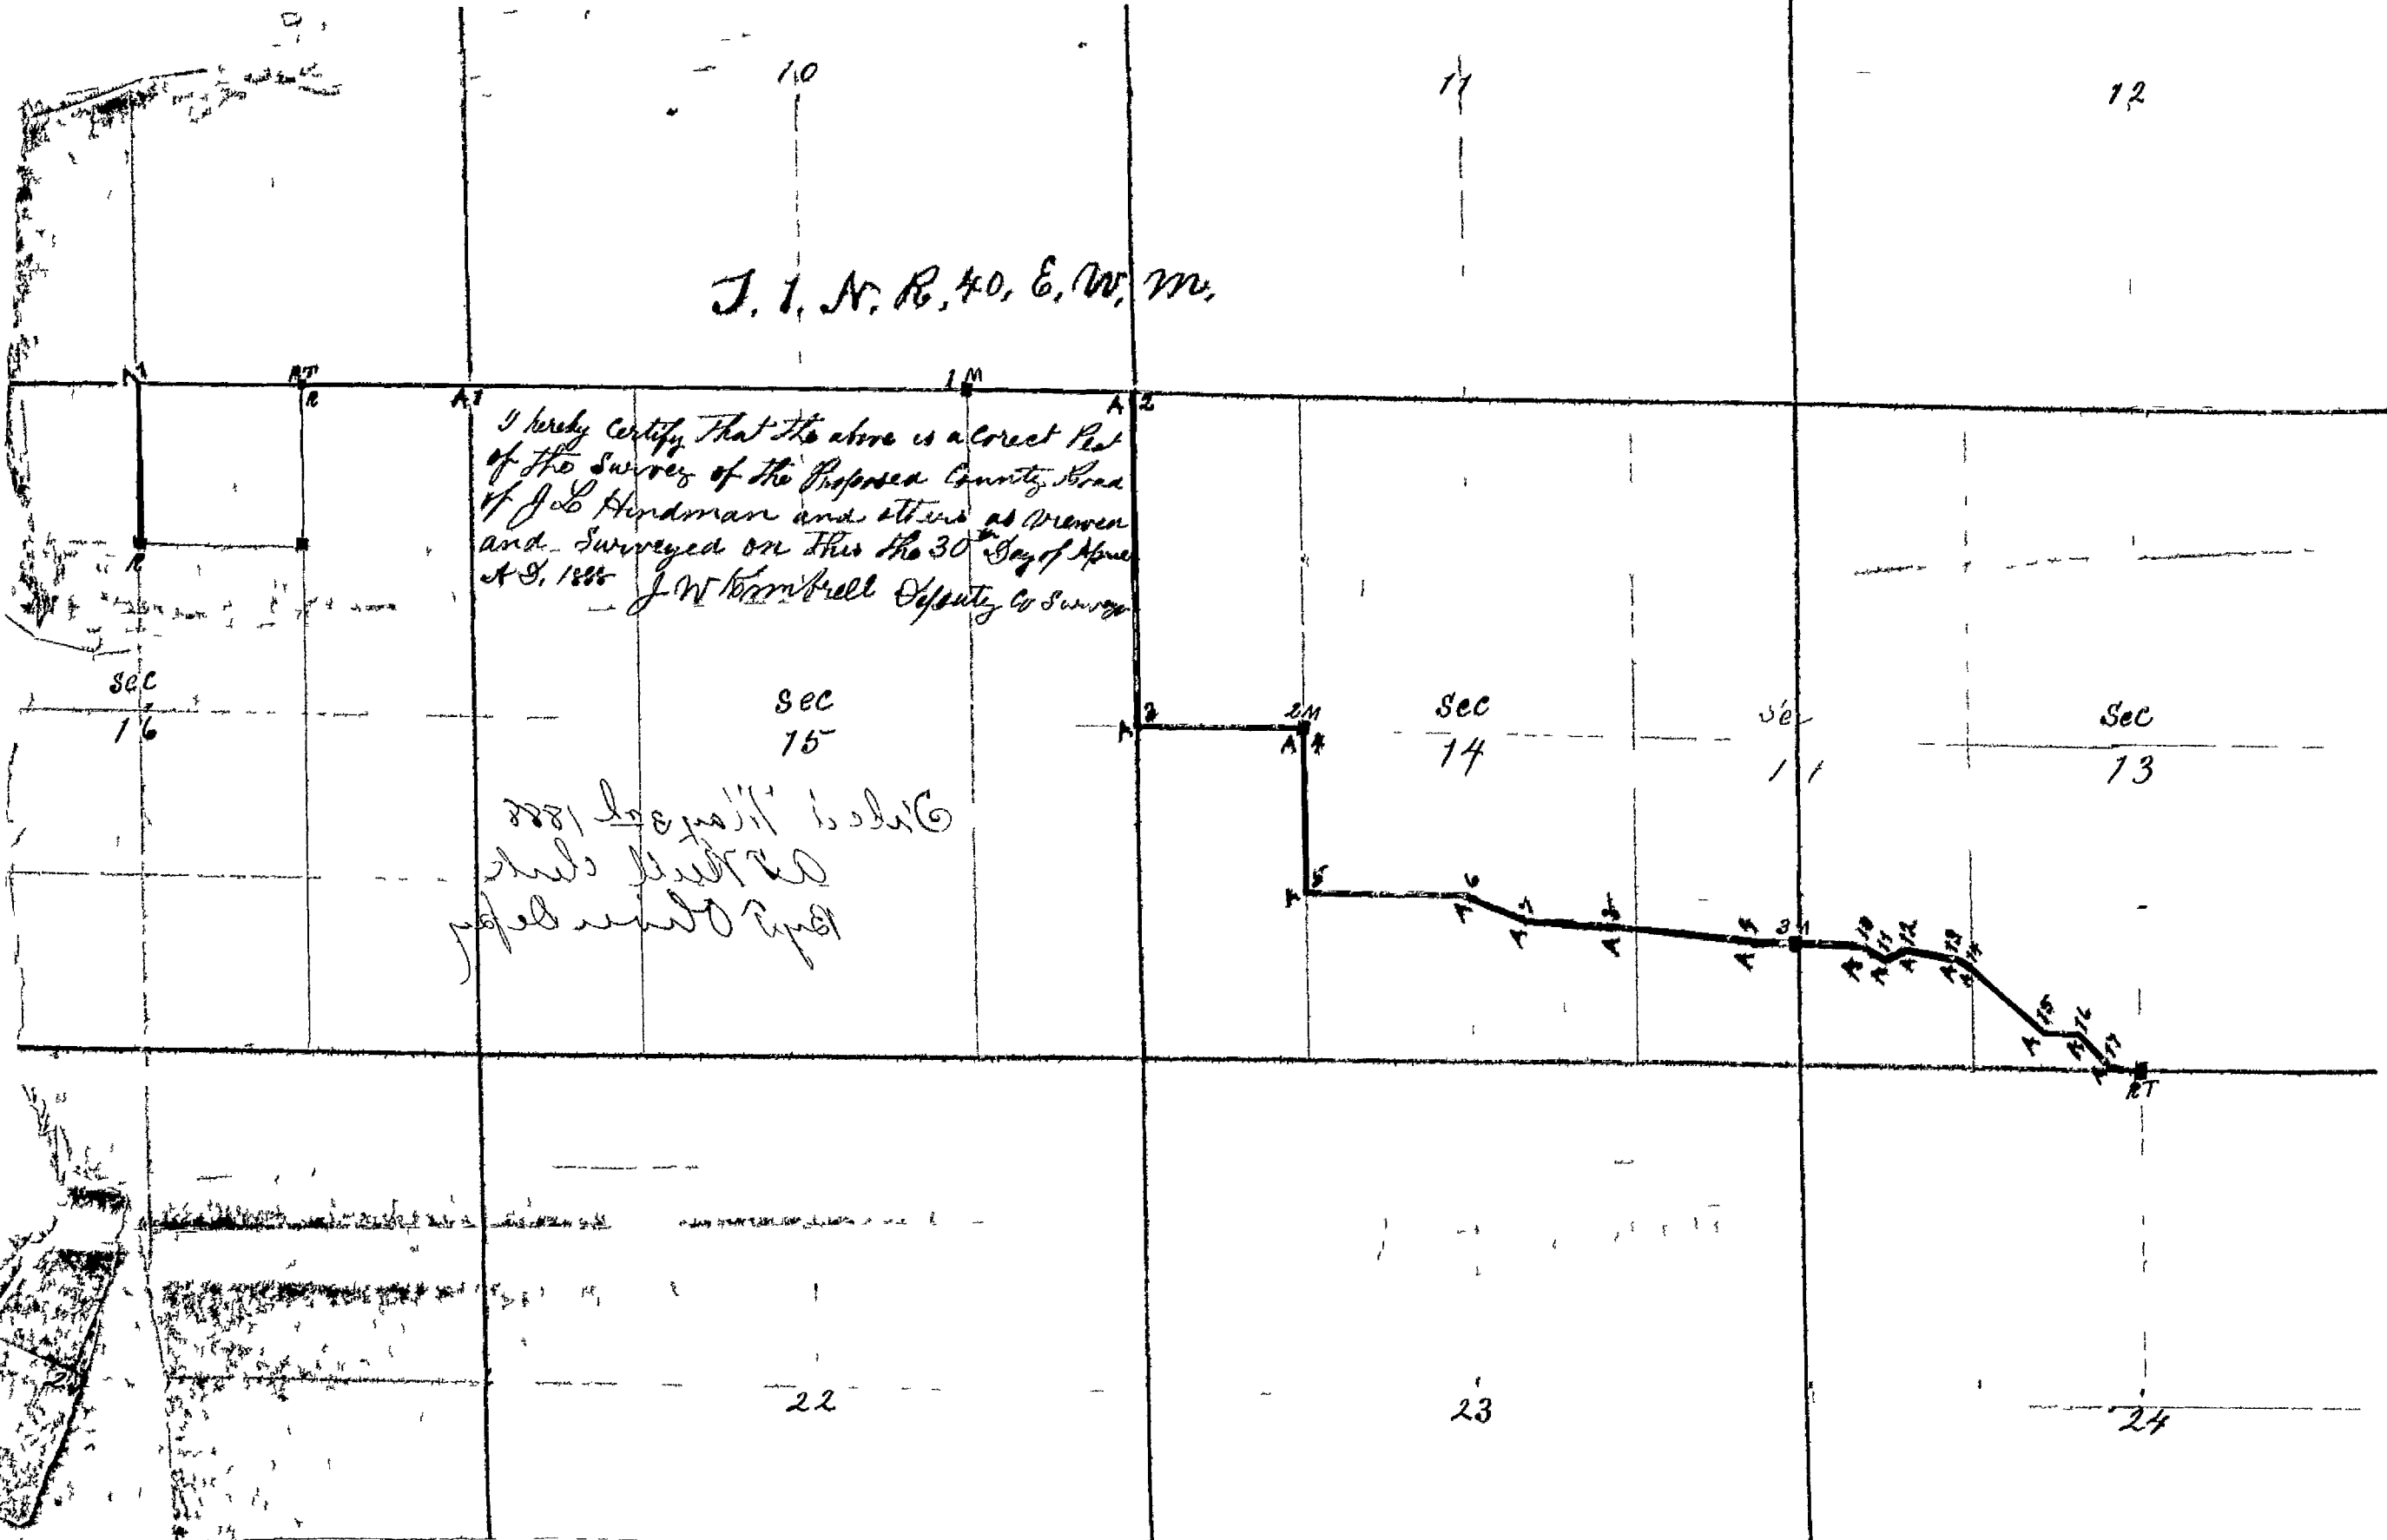 10
11
12
T. 1. N. R. 40, E. W. M.
RT
1 M
R
A 1
A 2
I hereby Certify That the above is a Corect Plat
of the Survey of the Proposed County Road
of J L Hindman and others as viewed
and Surveyed on this the 30th Day of April
A D, 1888 J W Kimbrell Deputy Co Surveyor
R
Sec
16
Sec
15
A 3
2 M
A 4
Sec
14
Sec
13
Filed May 3rd 1888
clerk
By Oliver Depy
A 5
A 6
A 7
A 8
A 9
3 M
A 10
A 11
A 12
A 13
A 14
A 15
A 16
A 17
RT
22
23
24